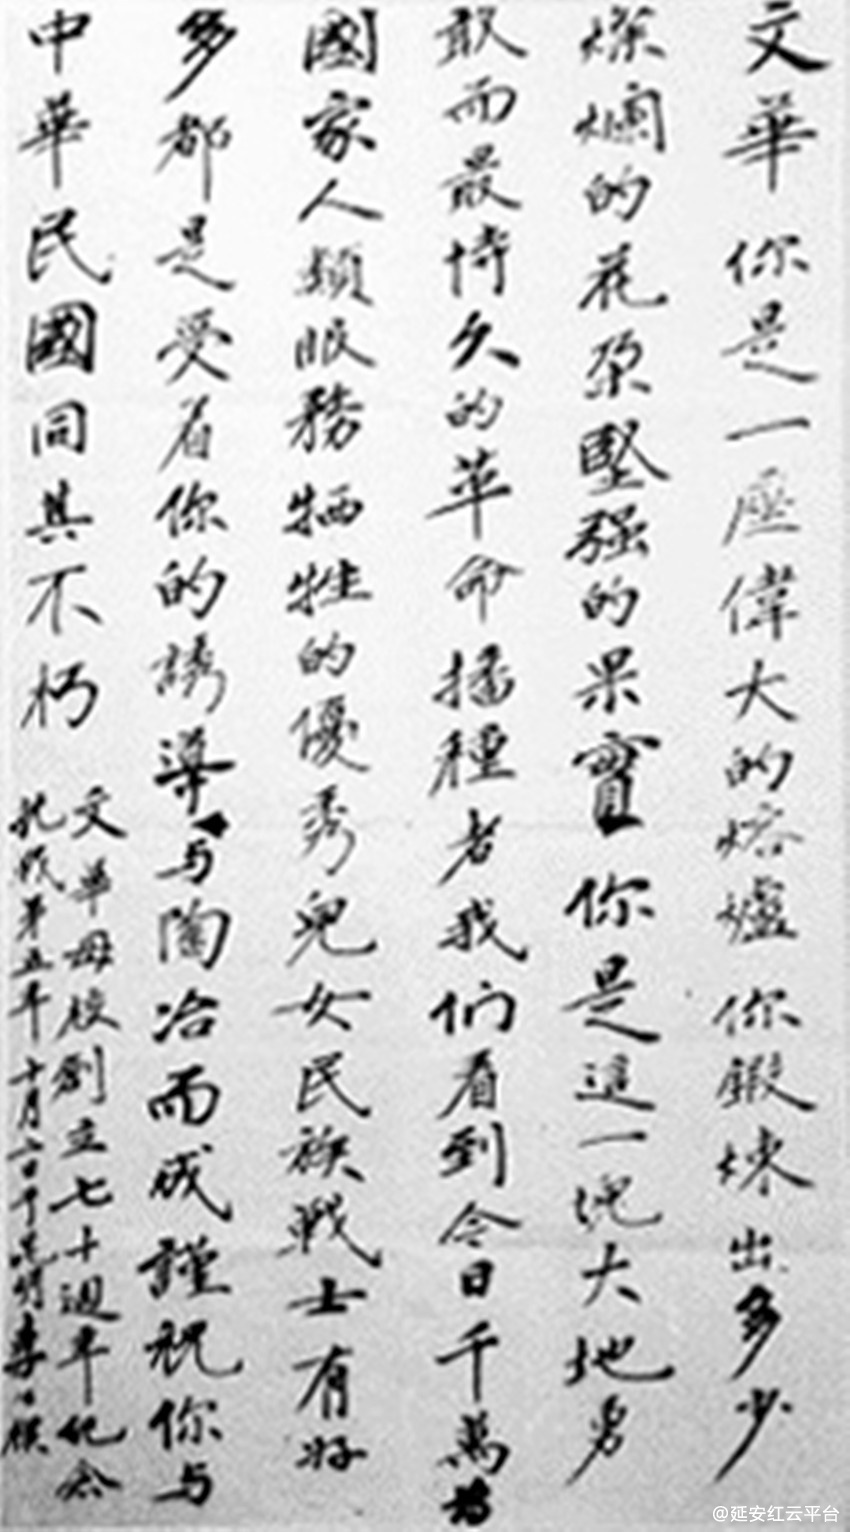 文華你是一座偉大的熔爐你鍛煉出多少
燦爛的花朵堅强的果實你是這一大地勇
敢而最恃久的革命播種者我們看到今日千萬為
國家人類服務牺牲的優秀兒女民族戰士有好
多都是受着你的誘導与陶冶而成謹祝你与
中華民國同其不朽
文華母校創立七十週年纪念
抗战第五年十月二日于昆明李公樸
@延安红云平台